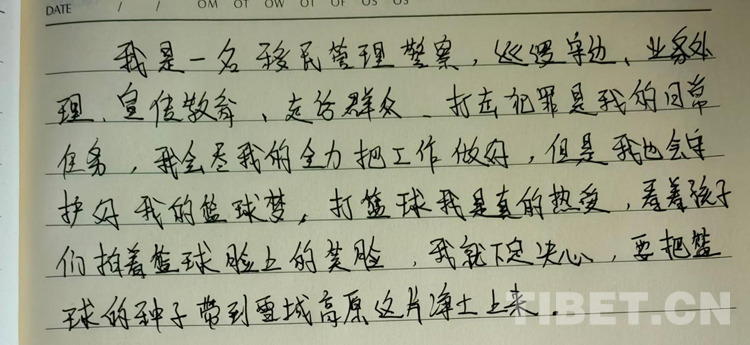 DATE / / MO TU WE TH FR SA SU
我是一名移民管理警察，巡逻守边、业务办
理、宣传教育、走访群众、打击犯罪是我的日常
任务，我会尽我的全力把工作做好，但是我也会守
护好我的篮球梦，打篮球我是真的热爱，看着孩子
们拍着篮球脸上的笑脸，我就下定决心，要把篮
球的种子带到雪域高原这片净土上来．
TIBET.CN